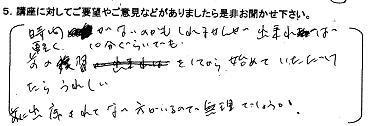 5. 講座に対してご要望やご意見などがありましたら是非お聞かせ下さい。
時間がないのかもしれませんが 出来れば
軽く 10分ぐらいでも
前の練習をしてから始めていただい
たらうれしい
前に出席されてない方がいるので無理でしょうか